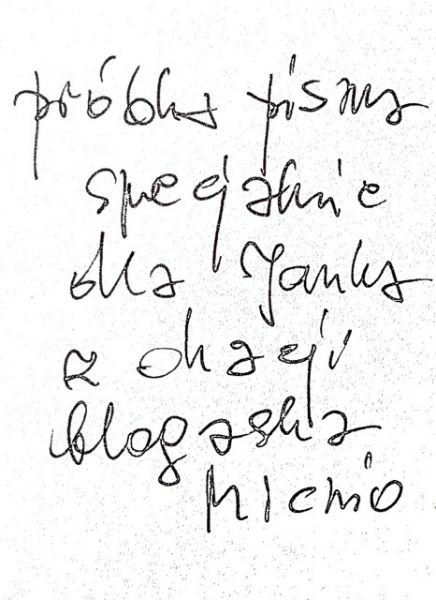 próbka pisma
specjalnie
dla Janka
z okazji
blogaska
Miecio